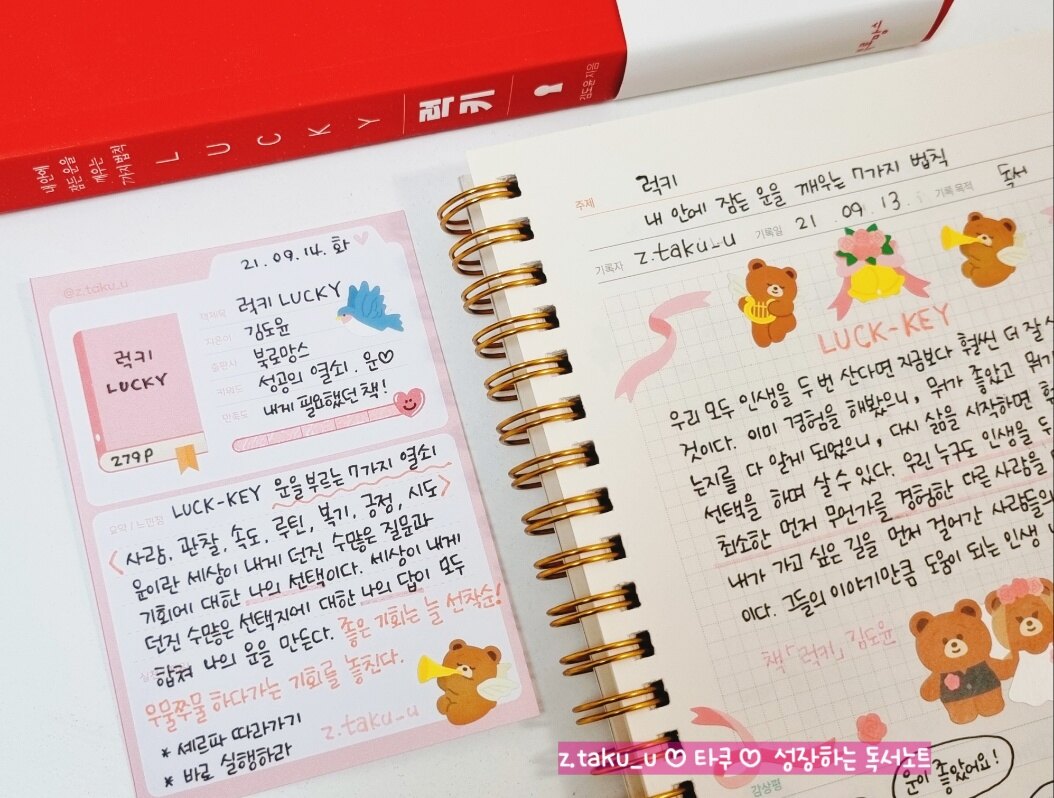 내 안에
잠든 운을
깨우는
7가지 법칙
LUCKY
럭키
김도윤 지음
북로망스
@z.taku_u
21. 09. 14. 화
럭키
LUCKY
279P
책제목 럭키 LUCKY
지은이 김도윤
출판사 북로망스
키워드 성공의 열쇠. 운♡
만족도 내게 필요했던 책!
요약 / 느낀점 LUCK-KEY 운을 부르는 7가지 열쇠
<사람, 관찰, 속도, 루틴, 복기, 긍정, 시도>
운이란 세상이 내게 던진 수많은 질문과
기회에 대한 나의 선택이다. 세상이 내게
던진 수많은 선택지에 대한 나의 답이 모두
합쳐 나의 운을 만든다. 좋은 기회는 늘 선착순!
우물쭈물 하다가는 기회를 놓친다.
* 셰르파 따라가기
* 바로 실행하라
z.taku_u
주제 럭키
내 안에 잠든 운을 깨우는 7가지 법칙
기록자 z.taku_u 기록일 21. 09. 13. 기록 목적 독서
LUCK-KEY
우리 모두 인생을 두 번 산다면 지금보다 훨씬 더 잘
것이다. 이미 경험을 해봤으니, 뭐가 좋았고 뭐가
는지를 다 알게 되었으니, 다시 삶을 시작하면
선택을 하며 살 수 있다. 우린 누구도 인생을 두
최소한 먼저 무언가를 경험한 다른 사람을
내가 가고 싶은 길을 먼저 걸어간 사람들의
이다. 그들의 이야기만큼 도움이 되는 인생
책「럭키」김도윤
감상평
운이 좋았어요!
z.taku_u ♡ 타쿠 ♡ 성장하는 독서노트